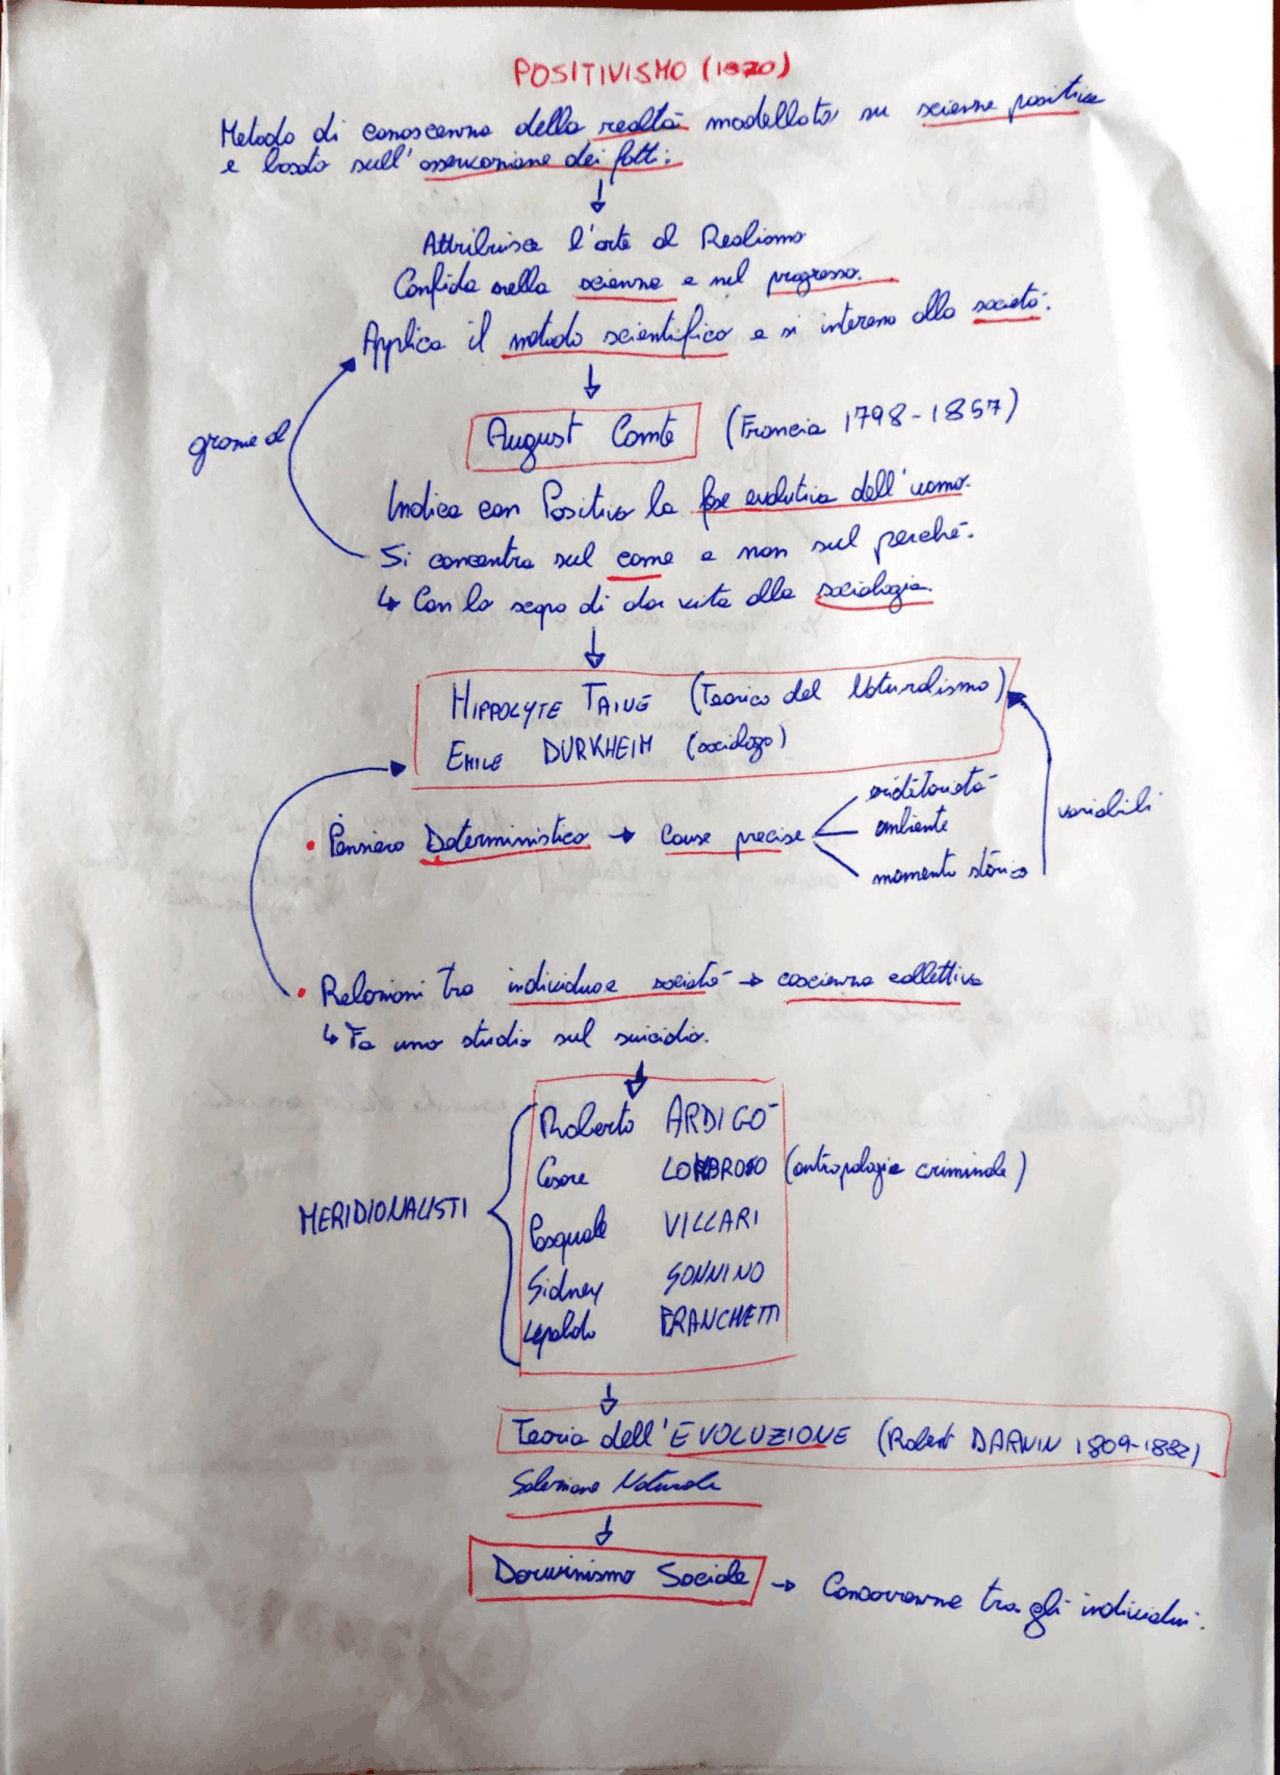 POSITIVISMO (1870)
Metodo di conoscenza della realtà modellato su scienze positive
e basato sull'osservazione dei fatti:
Attribuisce l'arte al Realismo
Confida nella scienza e nel progresso.
Applica il metodo scientifico e si interessa alla società.
grazie al
August Comte (Francia 1798-1857)
Indica con Positivo la fase evolutiva dell'uomo.
Si concentra sul come e non sul perché.
↳ Con lo scopo di dar vita alla sociologia.
HIPPOLYTE TAINE (Teorico del Naturalismo)
EMILE DURKHEIM (sociologo)
• Pensiero Deterministico → Cause precise
ereditarietà
ambiente
momento storico
variabili
• Relazioni tra individuo e società → coscienza collettiva
↳ Fa uno studio sul suicidio.
MERIDIONALISTI
Roberto ARDIGÒ
Cesare LOMBROSO (antropologia criminale)
Pasquale VILLARI
Sidney SONNINO
Lepoldo FRANCHETTI
Teoria dell'EVOLUZIONE (Robert DARWIN 1809-1882)
Selezione Naturale
Darwinismo Sociale → Concorrenza tra gli individui.